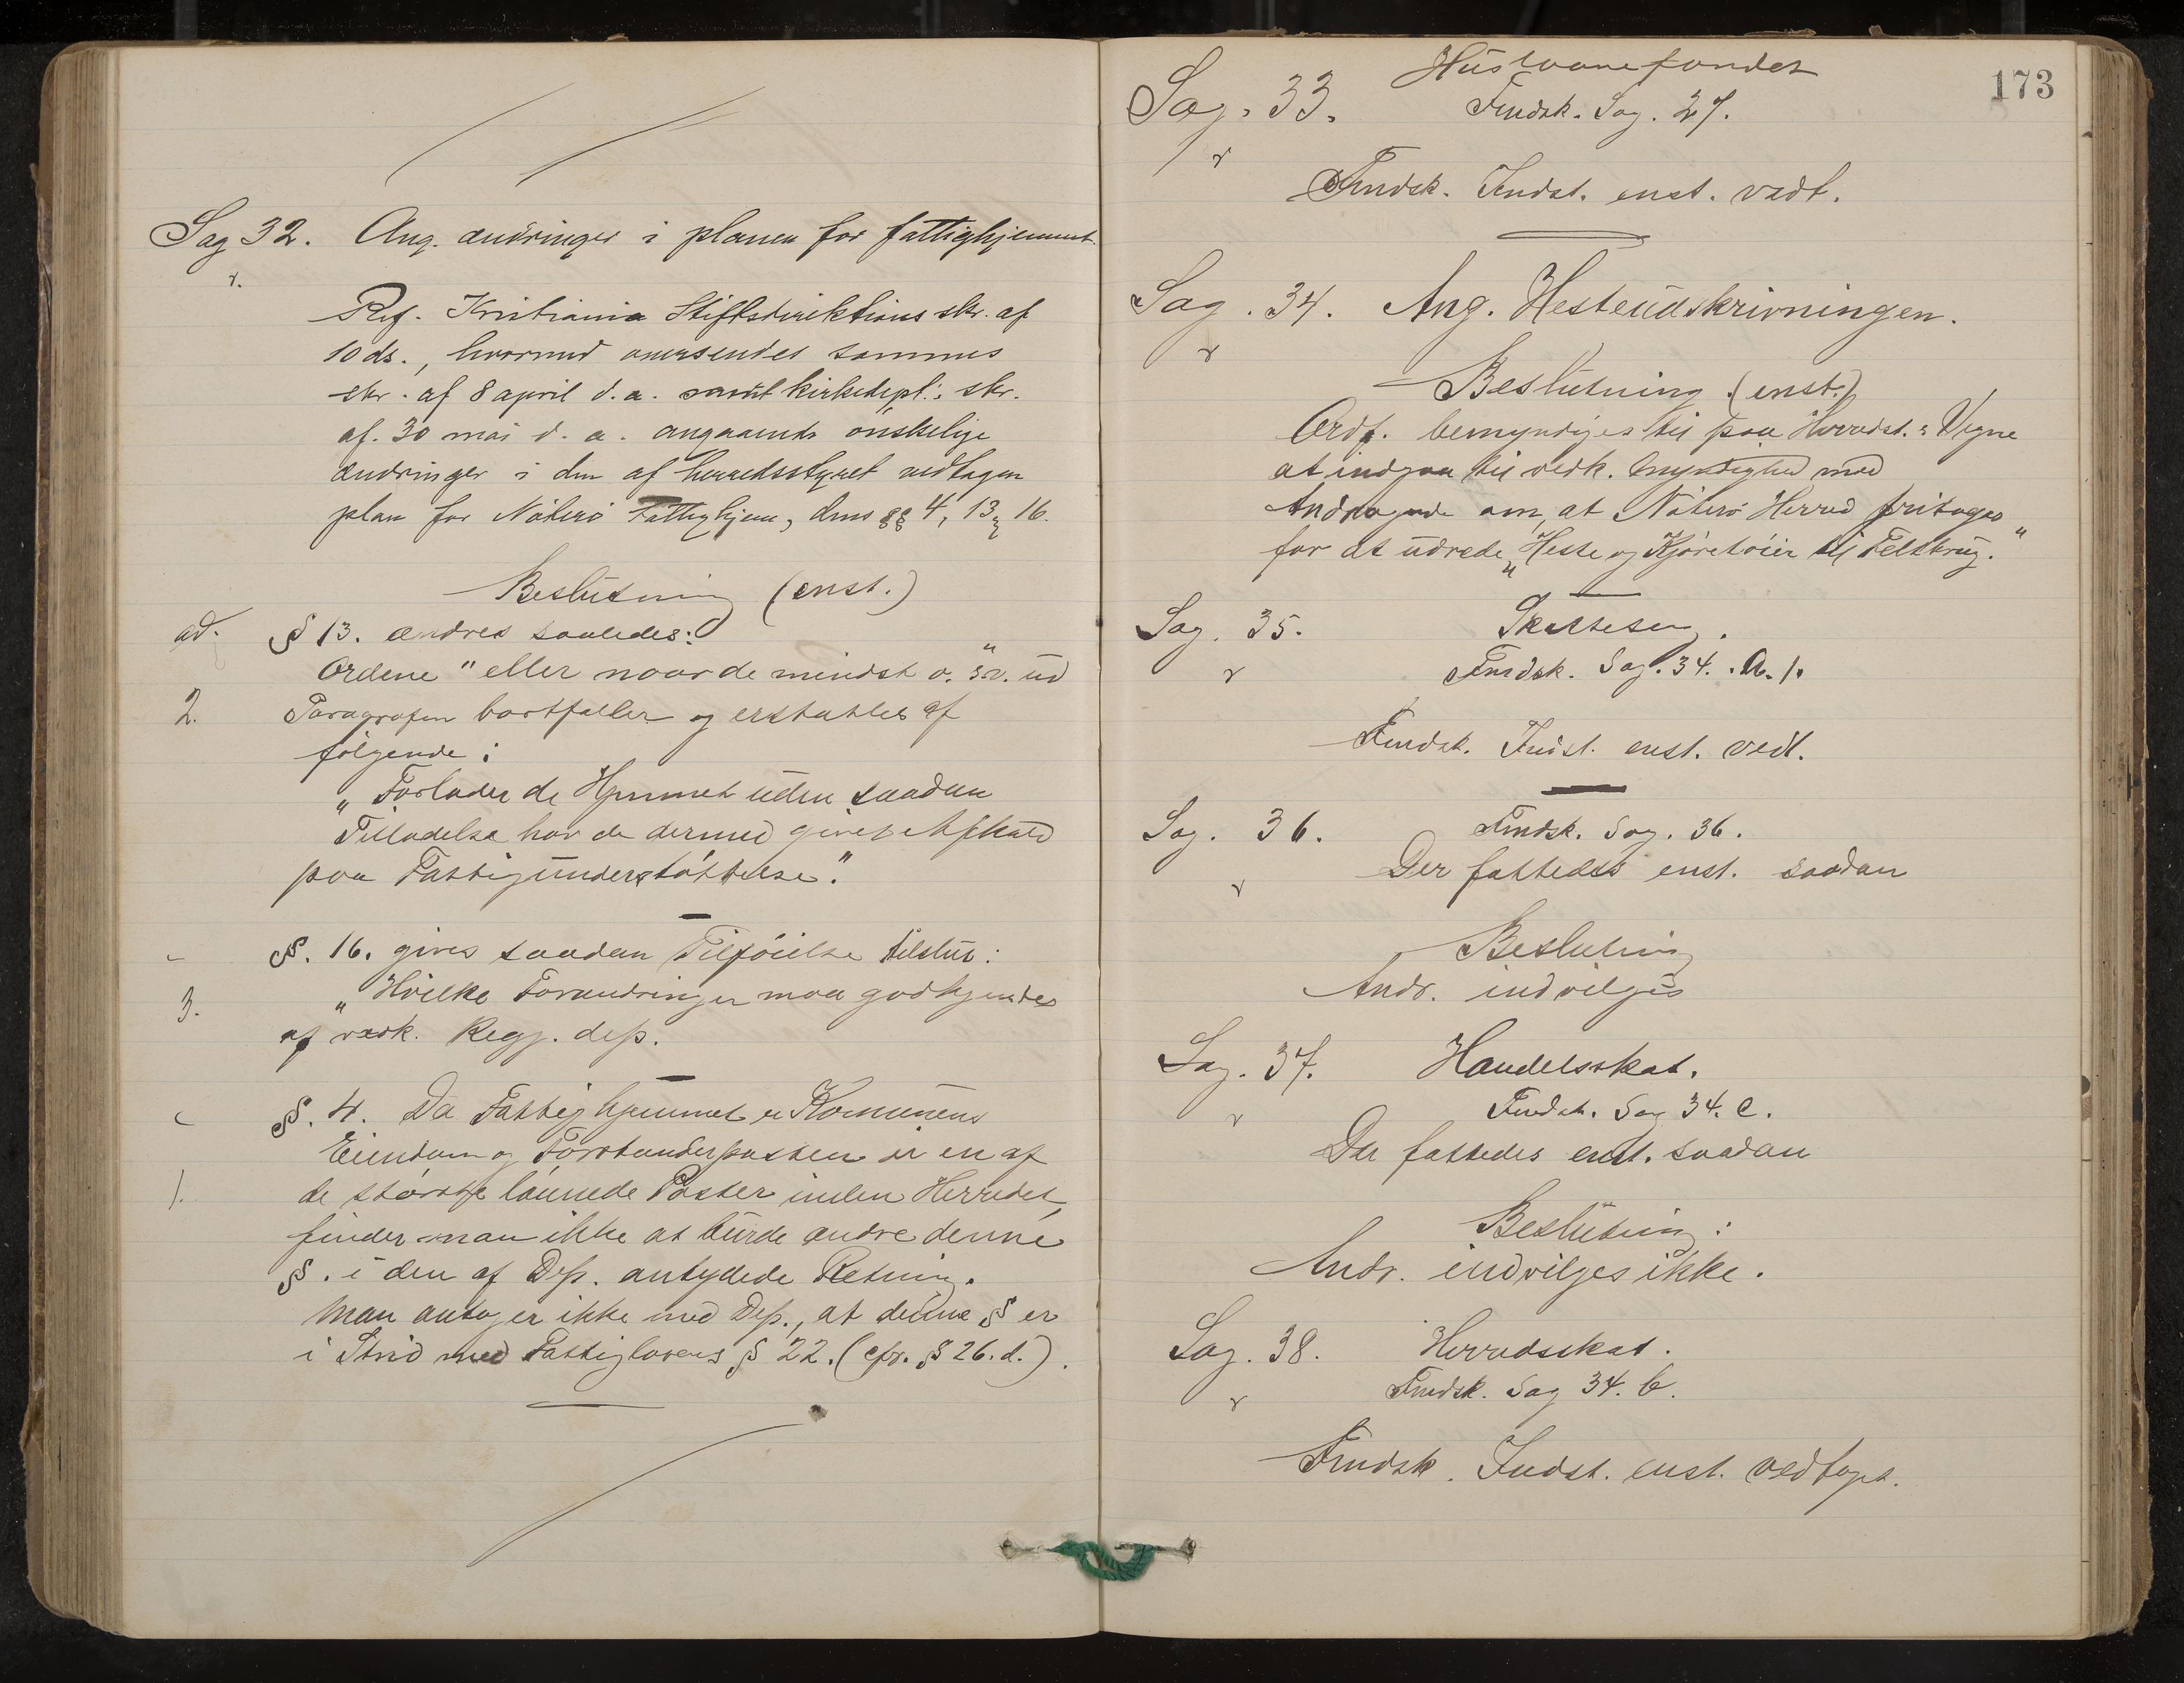 Sag 32. Ang. ændringer i planen for fattighjemmet.
v.
Ref. Kristiania Stiftsdirektions skr. af
10 ds., hvormed oversendes sammes
skr. af 8 april d. a. samt kirkedept.s skr.
af. 30 mai d. a. angaaende ønskelige
ændringer i den af herredsstyret vedtagen
plan for Nøterø Fattighjem, dens §§ 4, 13 & 16.
Beslutning (enst.)
ad. § 13. ændres saaledes:
Ordene "eller naar de mindst o. s. v." ud
2. Paragrafen bortfaller og erstattes af
følgende:
"Forlader de Hjemmet uden saadan
Tilladelse har de dermed givet Afkald
paa Fattigunderstøttelse."
- §. 16. gives saadan Tilføielse tilslut:
3. "Hvilke Forandringer maa godkjendes
af vedk. Regj. dep.
- §. 4. Da Fattighjemmet er Kommunens
Eiendom og Forstanderposten er en af
1. de største lønnede Poster inden Herredet,
finder man ikke at burde ændre denne
§. i den af Dep. antydede Retning.
Man antager ikke med Dep., at denne § er
i Strid med Fattiglovens § 22. (cfr. § 26. d.).
173
Huslaanefondet
Sag. 33. Fmdsk. Sag. 27.
v
Fmdsk. Indst. enst. vedt.
Sag. 34. Ang. Hesteudskrivningen.
v
Beslutning (enst.)
Ordf. bemyndiges til paa Herredst.s Vegne
at indgaa til vedk. Myndighed med
Andragende om, at Nøterø Herred fritages
for at udrede "Heste og Kjøretøier til Feltbrug."
Sag. 35. Skattesag.
v Fmdsk. Sag. 34. A. 1.
Fmdsk. Indst. enst. vedt.
Sag. 36. Fmdsk. Sag. 36.
v Der fattedes enst. saadan
Beslutning
Andr. indvilges
Sag. 37. Handelsskat.
v Fmdsk. Sag 34. C.
Der fattedes enst. saadan
Beslutning:
Andr. indvilges ikke.
Sag. 38. Herredsskat.
v Fmdsk. Sag 34. b.
Fmdsk. Indst. enst. vedtaget.